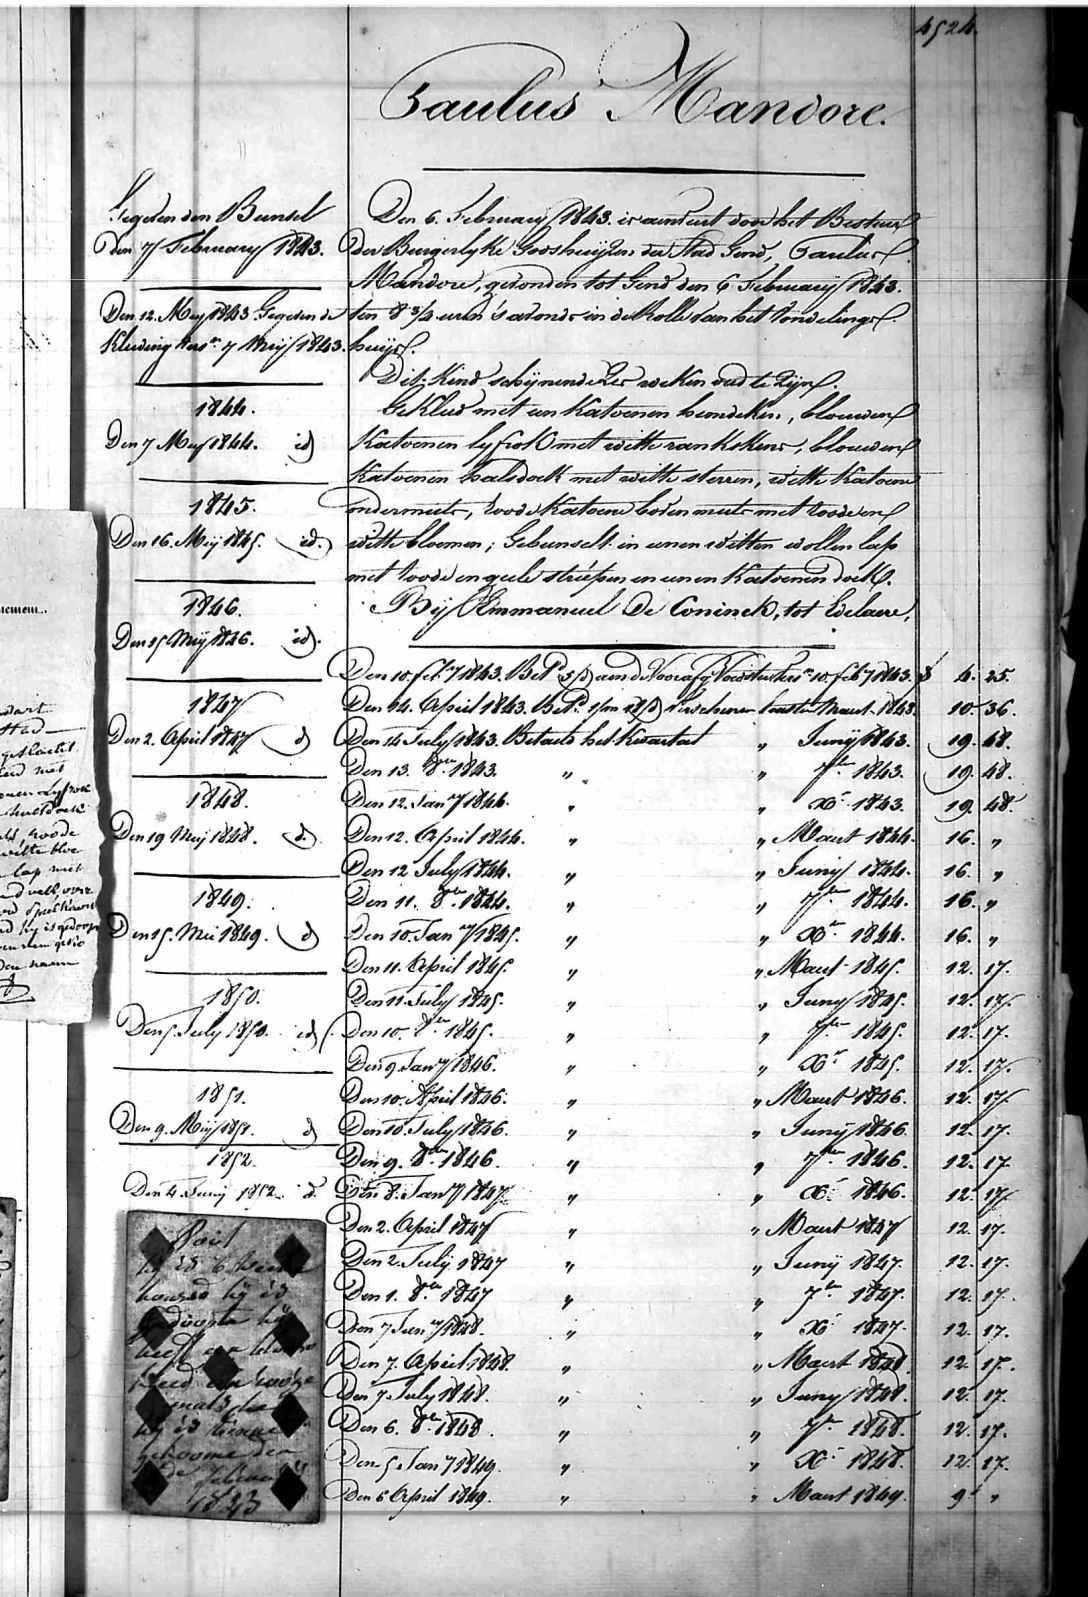 4524.
Paulus Mandore.
Gegeven den Bunsel
den 7 February 1843.
Den 12. Mey 1843 Gegeven de
Kleeding vers. 7 Meij 1843.
1844.
Den 7 Mey 1844. id
1845.
Den 16. Meij 1845. id.
1846.
Den 15 Meij 1846. id.
1847
Den 2. April 1847 d
1848.
Den 19 Meij 1848. d.
1849.
Den 15. Mei 1849. d
1850.
Den 5 July 1850. id
1851.
Den 9. Meij 1851. d
1852.
Den 4. Junij 1852. d.
Den 6. February 1843. is aanveert door het Bestuur
der Burgerlyke Godshuijzen der Stad Gend, Paulus
Mandore, gevonden tot Gend den 6 February 1843.
ten 8 3/4 uren 's avonds in de Rolle van het Vondelings
huijs.
Dit Kind schynende zes weken oud te zijn.
Gekleed met een Katoenen hemdeken, blouwen
Katoenen lyfrok met witte rankskens, blouwen
Katoenen halsdoek met witte sterren, witte Katoene
ondermuts, roode Katoene bovenmuts met roode en
witte bloemen; Gebunselt in eenen witten wollen lap
met roode en geele striepen en eenen Katoenen doek.
Bij Emmanuel De Coninck, tot Edelaere,
Den 10. feb.ry 1843. Bet.d aan de Voorafg. 10. feb.ry 1843. 4. 25.
Den 14. April 1843. Bet.d Maart 1843. 10. 36.
Den 14 July 1843. Betaald het Kwartaal „ Junij 1843. 19. 48.
Den 13. 8ber 1843. „ „ 7ber 1843. 19. 48.
Den 12. Jan.ry 1844. „ „ Xr 1843. 19. 48.
Den 12. April 1844. „ „ Maart 1844. 16. „
Den 12 July 1844. „ „ Juny 1844. 16. „
Den 11. 8ber 1844. „ „ 7ber 1844. 16. „
Den 10. Jan.ry 1845. „ „ Xr 1844. 16. „
Den 11. April 1845. „ „ Maart 1845. 12. 17.
Den 11 July 1845. „ „ Juny 1845. 12. 17.
Den 10. 8ber 1845. „ „ 7ber 1845. 12. 17.
Den 9. Jan.ry 1846. „ „ Xr 1845. 12. 17.
Den 10. April 1846. „ „ Maart 1846. 12. 17
Den 10. July 1846. „ „ Junij 1846. 12. 17.
Den 9. 8ber 1846. „ „ 7ber 1846. 12. 17
Den 8. Jan.ry 1847. „ „ Xr 1846. 12. 17
Den 2. April 1847 „ „ Maart 1847 12. 17.
Den 2. July 1847 „ „ Junij 1847. 12. 17.
Den 1. 8ber 1847 „ „ 7ber 1847. 12. 17.
Den 7 Jan.ry 1848. „ „ Xr 1847. 12. 17.
Den 7. April 1848. „ „ Maart 1848 12. 17.
Den 7 July 1848. „ „ Juny 1848. 12. 17.
Den 6. 8ber 1848. „ „ 7ber 1848. 12. 17.
Den 5 Jan.ry 1849. „ „ Xr 1848. 12. 17.
Den 6 April 1849. „ „ Maart 1849. 9 „
Paul
hy is 6
houwd hy is
gedoopt hy
heeft een
kleed
hy is
gebooren den
1843